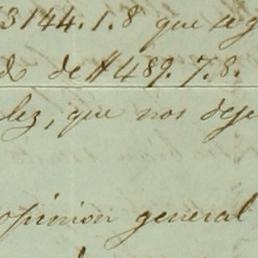 3144.1.8 que se g
do de $489.7.8.
lez, que nos deje
opinion general